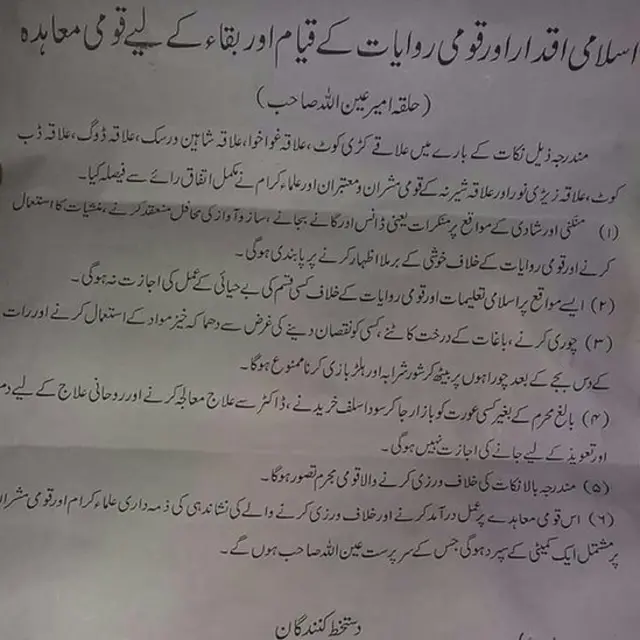 اسلامی اقدار اور قومی روایات کے قیام اور بقاء کے لیے قومی معاہدہ
(حلقہ امیر عین اللہ صاحب)
مندرجہ ذیل نکات کے بارے میں علاقے کڑی کوٹ، علاقہ غواخوا، علاقہ شاہین ورسک، علاقہ ڈوگ، علاقہ ڈب
کوٹ، علاقہ زیڑی نور اور علاقہ شیرنہ کے قومی مشران و معتبران اور علماء کرام نے مکمل اتفاق رائے سے فیصلہ کیا۔
(۱) منگنی اور شادی کے مواقع پر منکرات یعنی ڈانس اور گانے بجانے، ساز و آواز کی محافل منعقد کرنے، منشیات کا استعمال
کرنے اور قومی روایات کے خلاف خوشی کے برملا اظہار کرنے پر پابندی ہوگی۔
(۲) ایسے مواقع پر اسلامی تعلیمات اور قومی روایات کے خلاف کسی قسم کی بے حیائی کے عمل کی اجازت نہ ہوگی۔
(۳) چوری کرنے، باغات کے درخت کاٹنے، کسی کو نقصان دینے کی غرض سے دھماکہ خیز مواد کے استعمال کرنے اور رات
کے دس بجے کے بعد چوراہوں پر بیٹھ کر شور شرابہ اور ہلڑ بازی کرنا ممنوع ہوگا۔
(۴) بالغ محرم کے بغیر کسی عورت کو بازار جا کر سودا سلف خریدنے، ڈاکٹر سے علاج معالجہ کرنے اور روحانی علاج کے لیے دم
اور تعویذ کے لیے جانے کی اجازت نہیں ہوگی۔
(۵) مندرجہ بالا نکات کی خلاف ورزی کرنے والا قومی مجرم تصور ہوگا۔
(۶) اس قومی معاہدے پر عمل درآمد کرنے اور خلاف ورزی کرنے والے کی نشاندہی کی ذمہ داری علماء کرام اور قومی مشران
پر مشتمل ایک کمیٹی کے سپرد ہوگی جس کے سرپرست عین اللہ صاحب ہوں گے۔
دستخط کنندگان